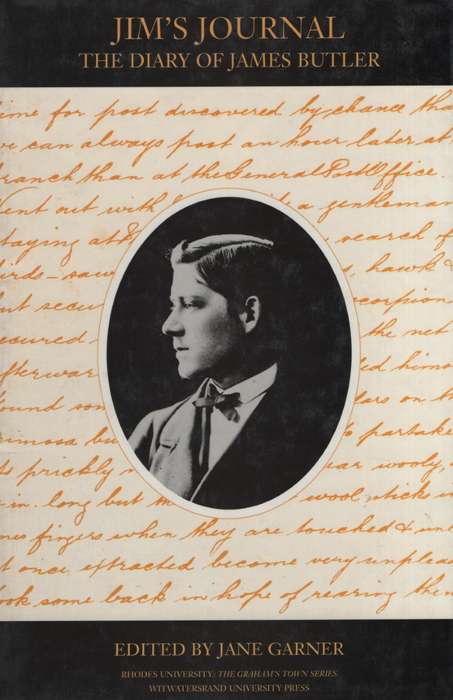 JIM'S JOURNAL
THE DIARY OF JAMES BUTLER
ime for post discovered by chance tha
we can always post an hour later at
ranch than at the General Post Office.
Went out with a gentleman
staying at search of
birds - saw , hawk &
but secur scorpion
ecured the net
afterwar ed himse
ound som ars on th
imosa bu partake
ts prickly ear wooly,
in. long but th wool, sticks in
nes fingers when they are touched & un
t once extracted become very unplea
ook some back in hope of rearing them
EDITED BY JANE GARNER
RHODES UNIVERSITY: THE GRAHAM'S TOWN SERIES
WITWATERSRAND UNIVERSITY PRESS